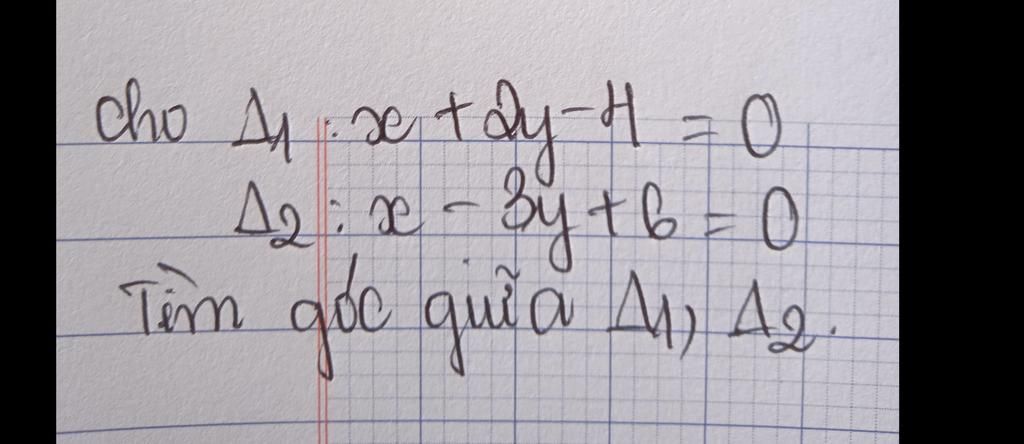 Cho Δ1 : x + 2y - 4 = 0
Δ2 : x - 3y + 6 = 0
Tìm góc giữa Δ1, Δ2.